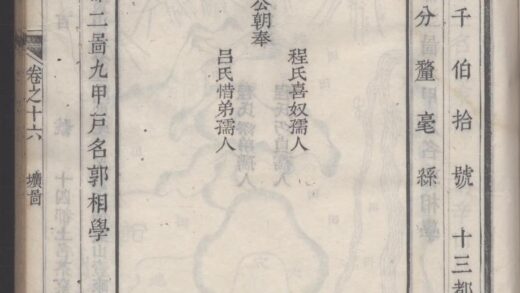 千伯拾號 十三都
分釐毫絲
程氏喜奴孺人
公朝奉
呂氏惜弟孺人
二啚九甲戸名郭相學
卷之十六 壙啚